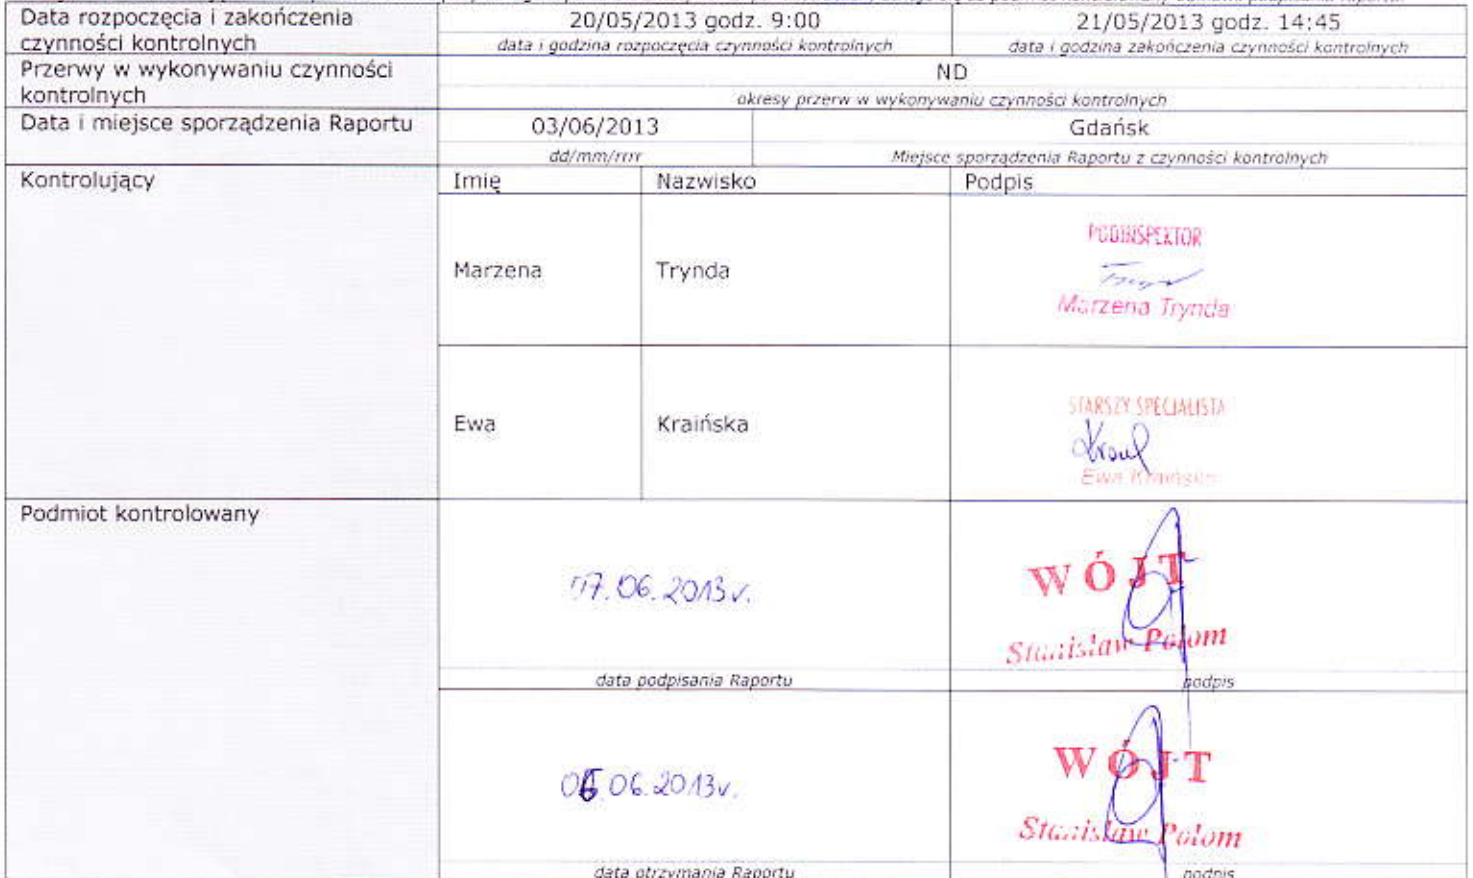 Data rozpoczęcia i zakończenia
czynności kontrolnych
20/05/2013 godz. 9:00
data i godzina rozpoczęcia czynności kontrolnych
21/05/2013 godz. 14:45
data i godzina zakończenia czynności kontrolnych
Przerwy w wykonywaniu czynności
kontrolnych
ND
okresy przerw w wykonywaniu czynności kontrolnych
Data i miejsce sporządzenia Raportu
03/06/2013
dd/mm/rrrr
Gdańsk
Miejsce sporządzenia Raportu z czynności kontrolnych
Kontrolujący
Imię Nazwisko Podpis
Marzena Trynda
PODINSPEKTOR
Marzena Trynda
Ewa Kraińska
STARSZY SPECJALISTA
Ewa Kraińska
Podmiot kontrolowany
07.06.2013r.
WÓJT
Stanisław Połom
data podpisania Raportu
podpis
06.2013r.
WÓJT
Stanisław Połom
data otrzymania Raportu
podpis